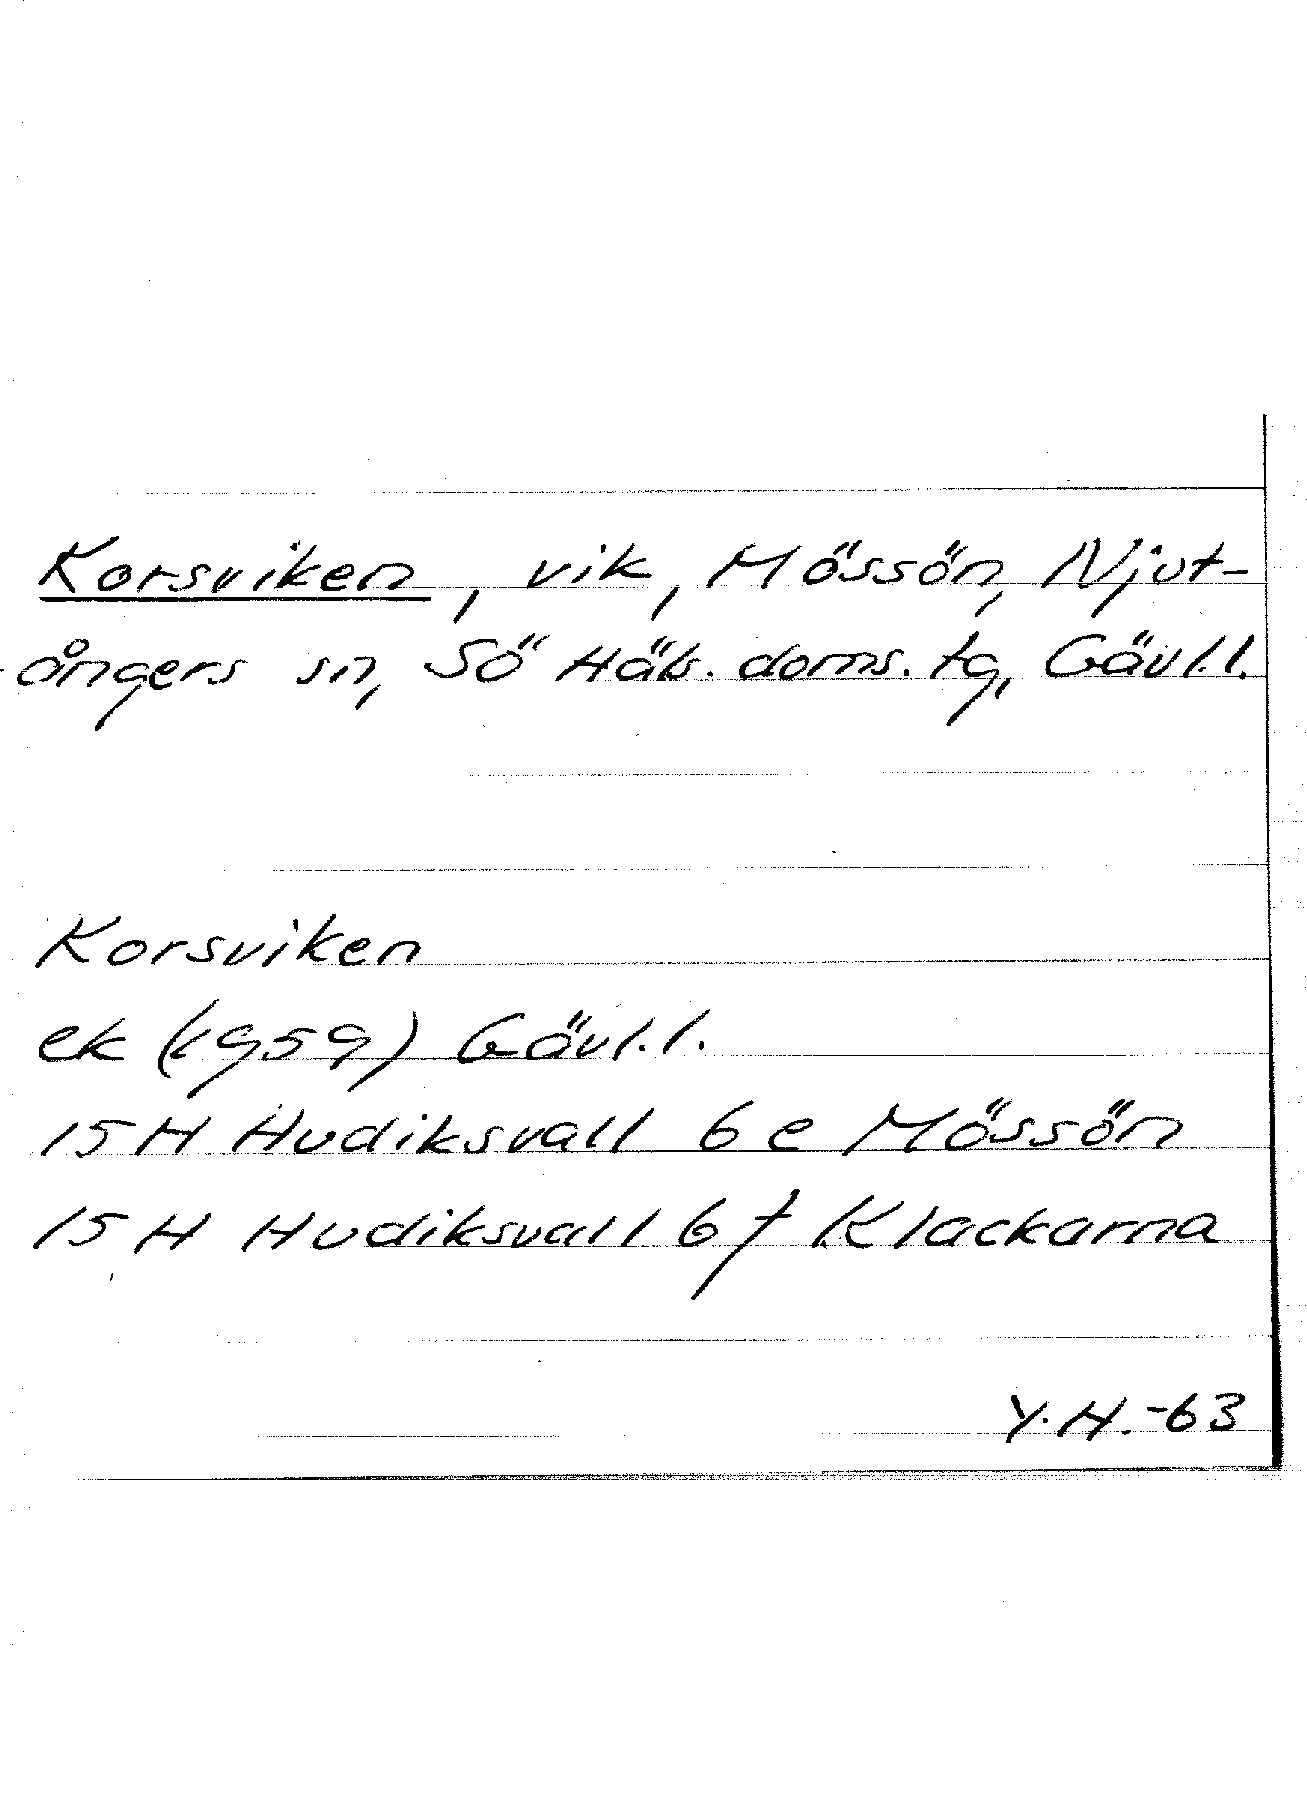 Korsviken, vik, Mössön, Njut-
ångers sn, Sö Häls. doms. tg, Gävl.l.
Korsviken
ek (1959) Gävl.l.
15 H Hudiksvall 6 e Mössön
15 H Hudiksvall 6 f Klackarna
Y.H.-63